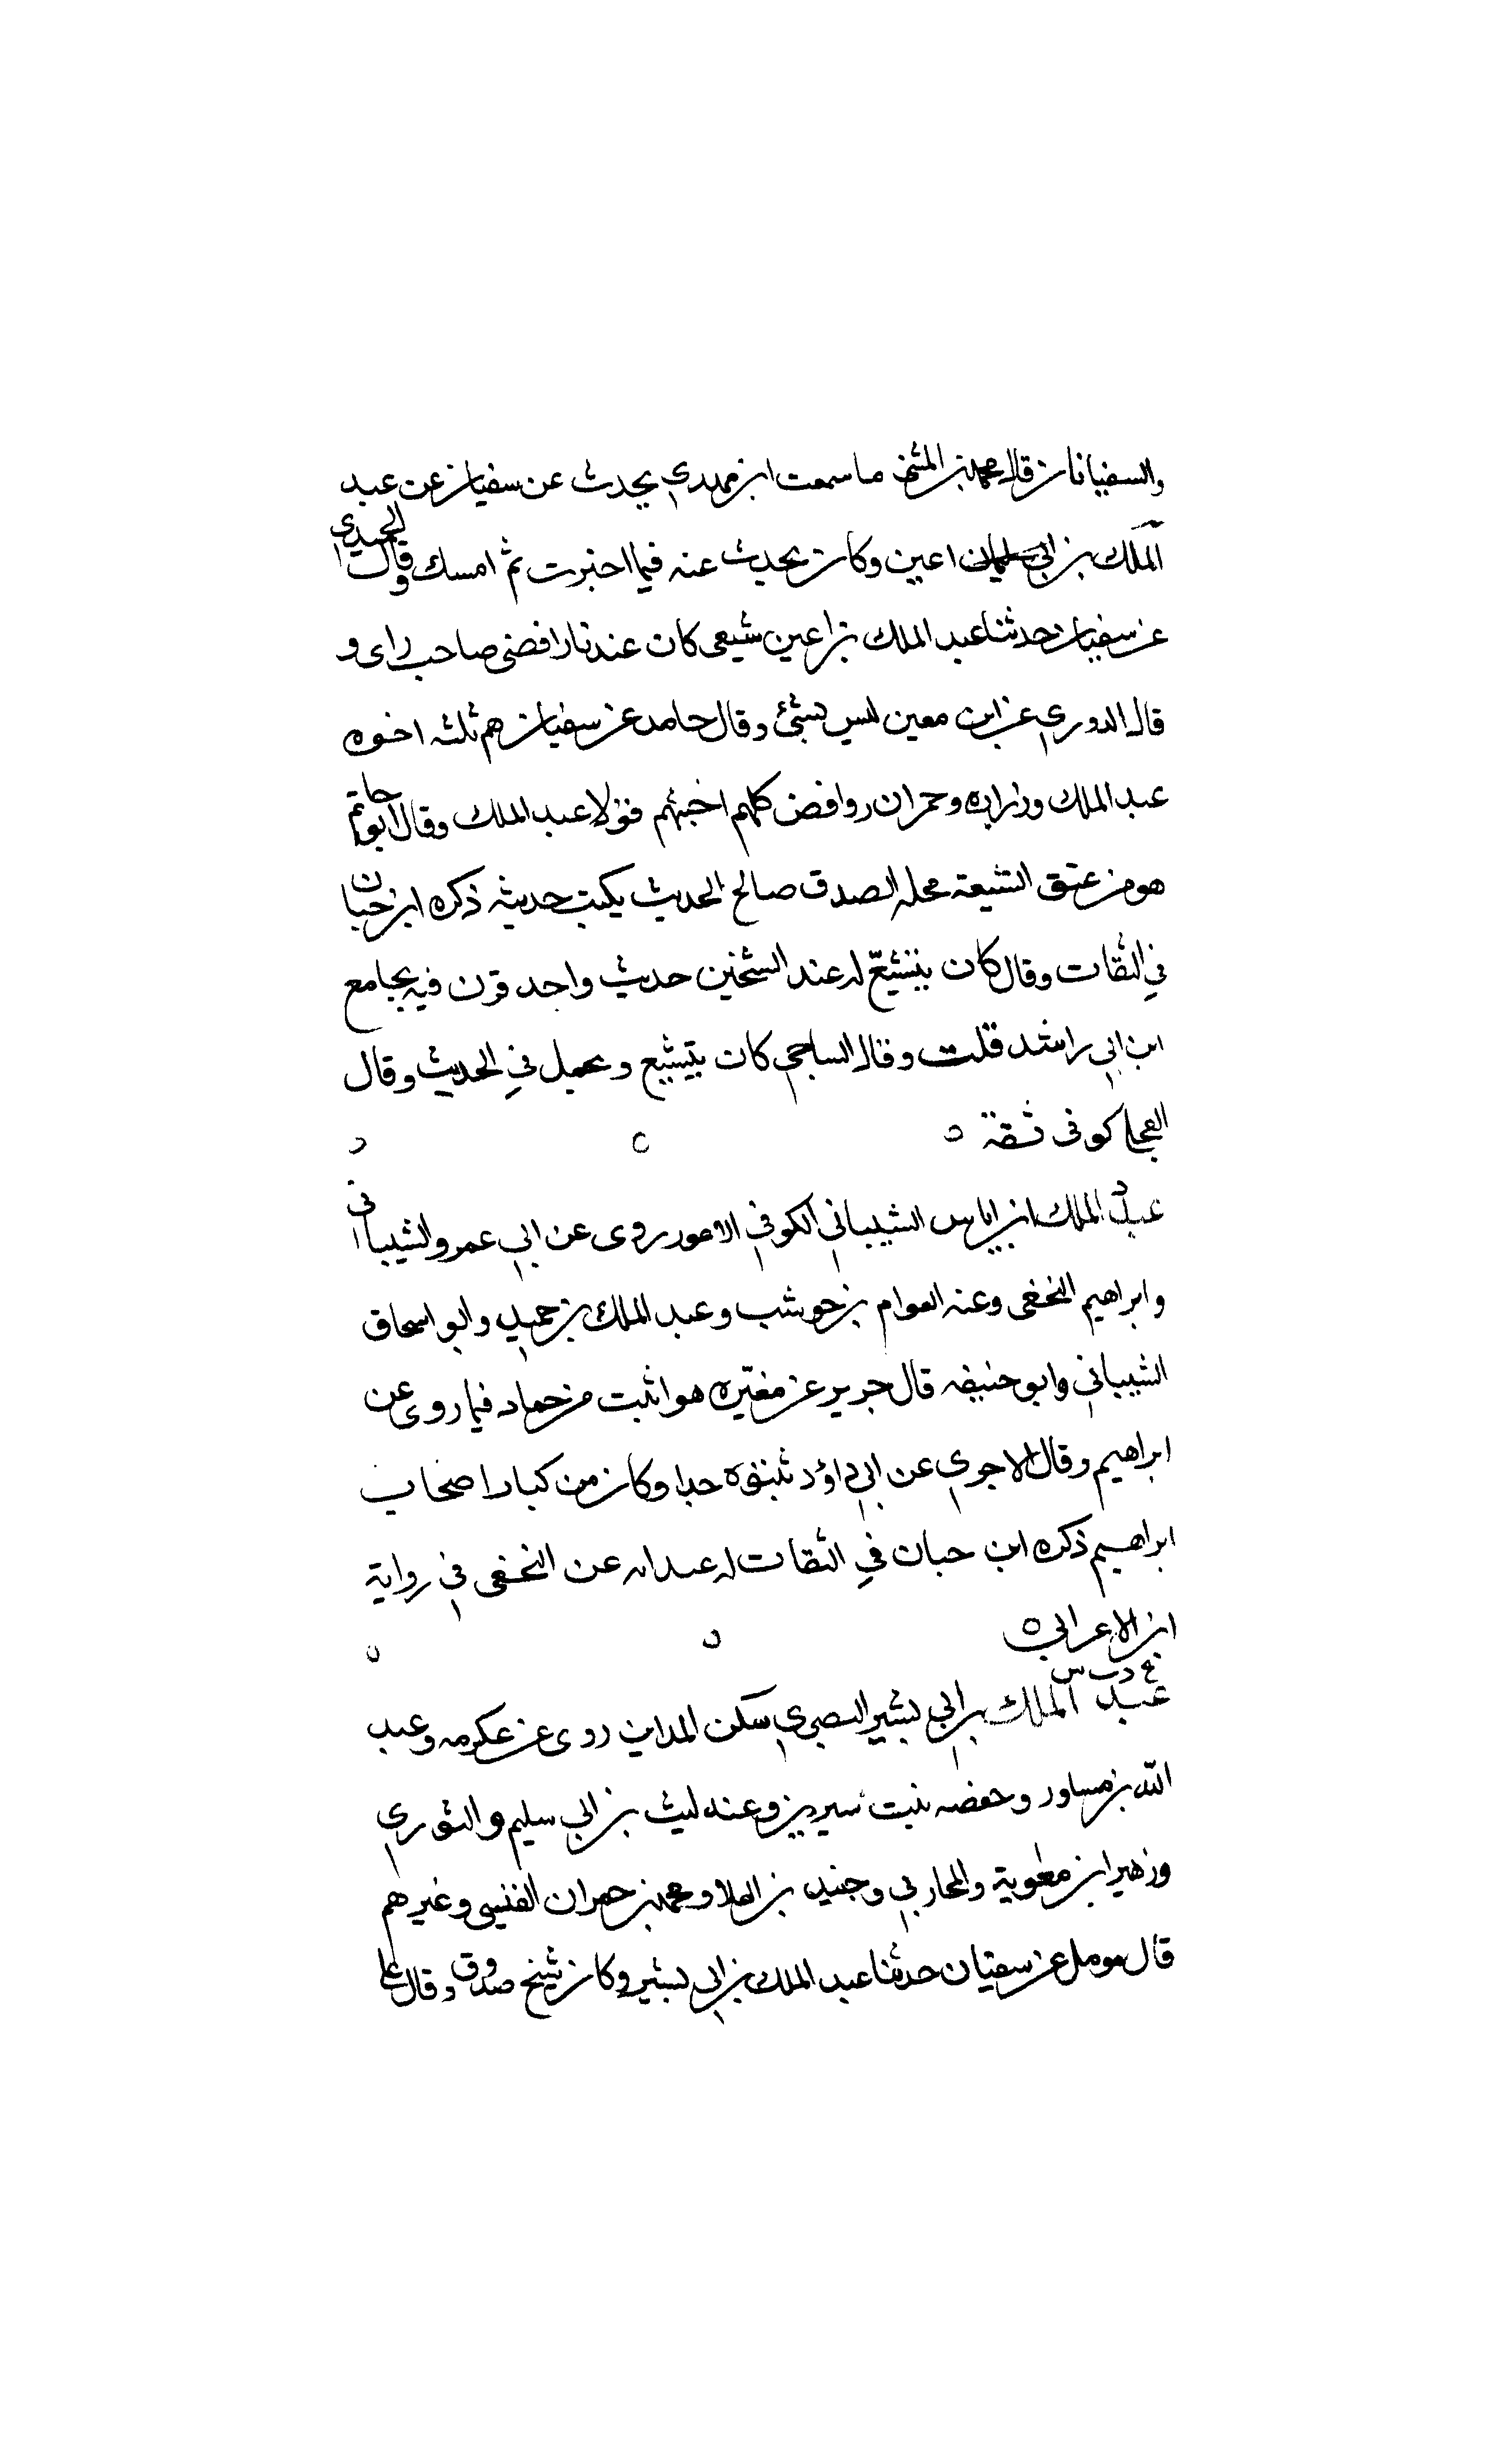 والسفيانان قال محمد بن المثنى ما سمعت ابن مهدي يحدث عن سفيان عن عبد
الملك بن اعين وكان يحدث عنه فيما اخبرت ثم امسك وقال الحميدي
عن سفيان حدثنا عبد الملك بن اعين شيعي كان عندنا رافضي صاحب راى و
قال الدوري عن ابن معين ليس بشئ وقال حامد عن سفيان هم ثلثه اخوه
عبد الملك وزراره وحمران روافض كلهم اخبثهم قولا عبد الملك وقال ابو حاتم
هو من عتق الشيعة محله الصدق صالح الحديث يكتب حديثه ذكره ابن حبان
في الثقات وقال كان يتشيع له عند الشيخين حديث واحد قرن فيه بجامع
ابن ابي راشد قلت وقال الساجي كان يتشيع و يحمل في الحديث وقال
العجلي كوفى ثقة
عبد الملك ابن اياس الشيباني الكوفي الاعور روى عن ابي عمرو الشيباني
وابراهيم النخعى وعنه العوام بن حوشب وعبد الملك بن حميد وابو اسحاق
الشيباني وابو حنيفه قال جرير عن مغيره هو اثبت من حماد فيما روى عن
ابراهيم وقال الاجري عن ابي داؤد ثقة جدا وكان من كبار اصحاب
ابراهيم ذكره ابن حبان في الثقات له عن النخعى في رواية
ابن الاعرابي
د ت س
عبد الملك بن ابي بشير البصري سكن المداين روى عن عكرمه وعبد
الله بن مساور وحفصه بنت سيرين وعنه ليث بن ابي سليم والثوري
وزهير ابن معوية والمحاربي وجنيد بن العلا ومحمد بن حمران القيسى وغيرهم
قال مومل عن سفيان حدثنا عبد الملك بن ابي بشير وكان شيخ صدوق وقال على